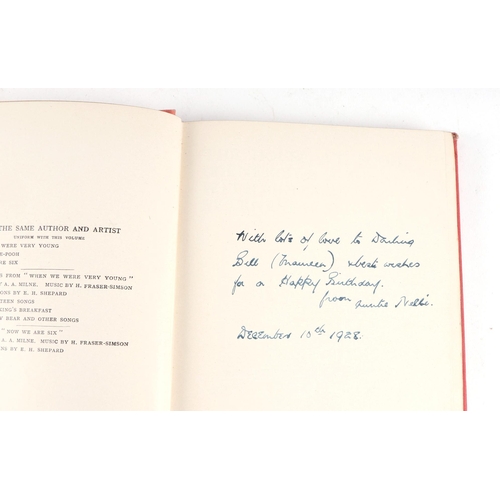 THE SAME AUTHOR AND ARTIST
UNIFORM WITH THIS VOLUME
WERE VERY YOUNG
E-POOH
RE SIX
S FROM "WHEN WE WERE VERY YOUNG"
Y A. A. MILNE. MUSIC BY H. FRASER-SIMSON
IONS BY E. H. SHEPARD
TEEN SONGS
KING'S BREAKFAST
Y BEAR AND OTHER SONGS
"NOW WE ARE SIX"
A. A. MILNE. MUSIC BY H. FRASER-SIMSON
NS BY E. H. SHEPARD
With lots of love to Darling
Bill (Maureen) & best wishes
for a Happy Birthday.
from Auntie Nellie.
December 10th 1928.